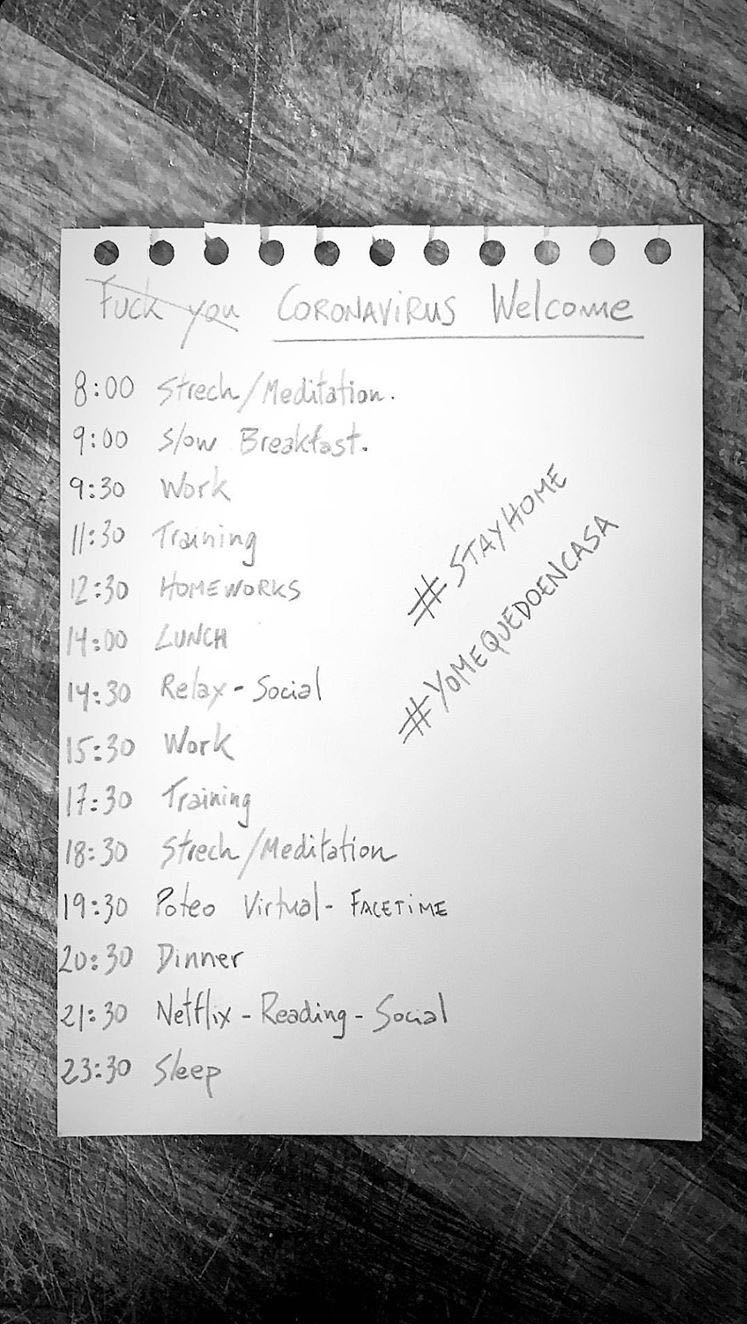 Fuck you CORONAVIRUS Welcome
8:00 Strech/Meditation.
9:00 Slow Breakfast.
9:30 Work
11:30 Training
12:30 HOMEWORKS
14:00 LUNCH
14:30 Relax - Social
15:30 Work
17:30 Training
18:30 Strech/Meditation
19:30 Poteo Virtual - FACETIME
20:30 Dinner
21:30 Netflix - Reading - Social
23:30 Sleep
#STAYHOME
#YOMEQUEDOENCASA